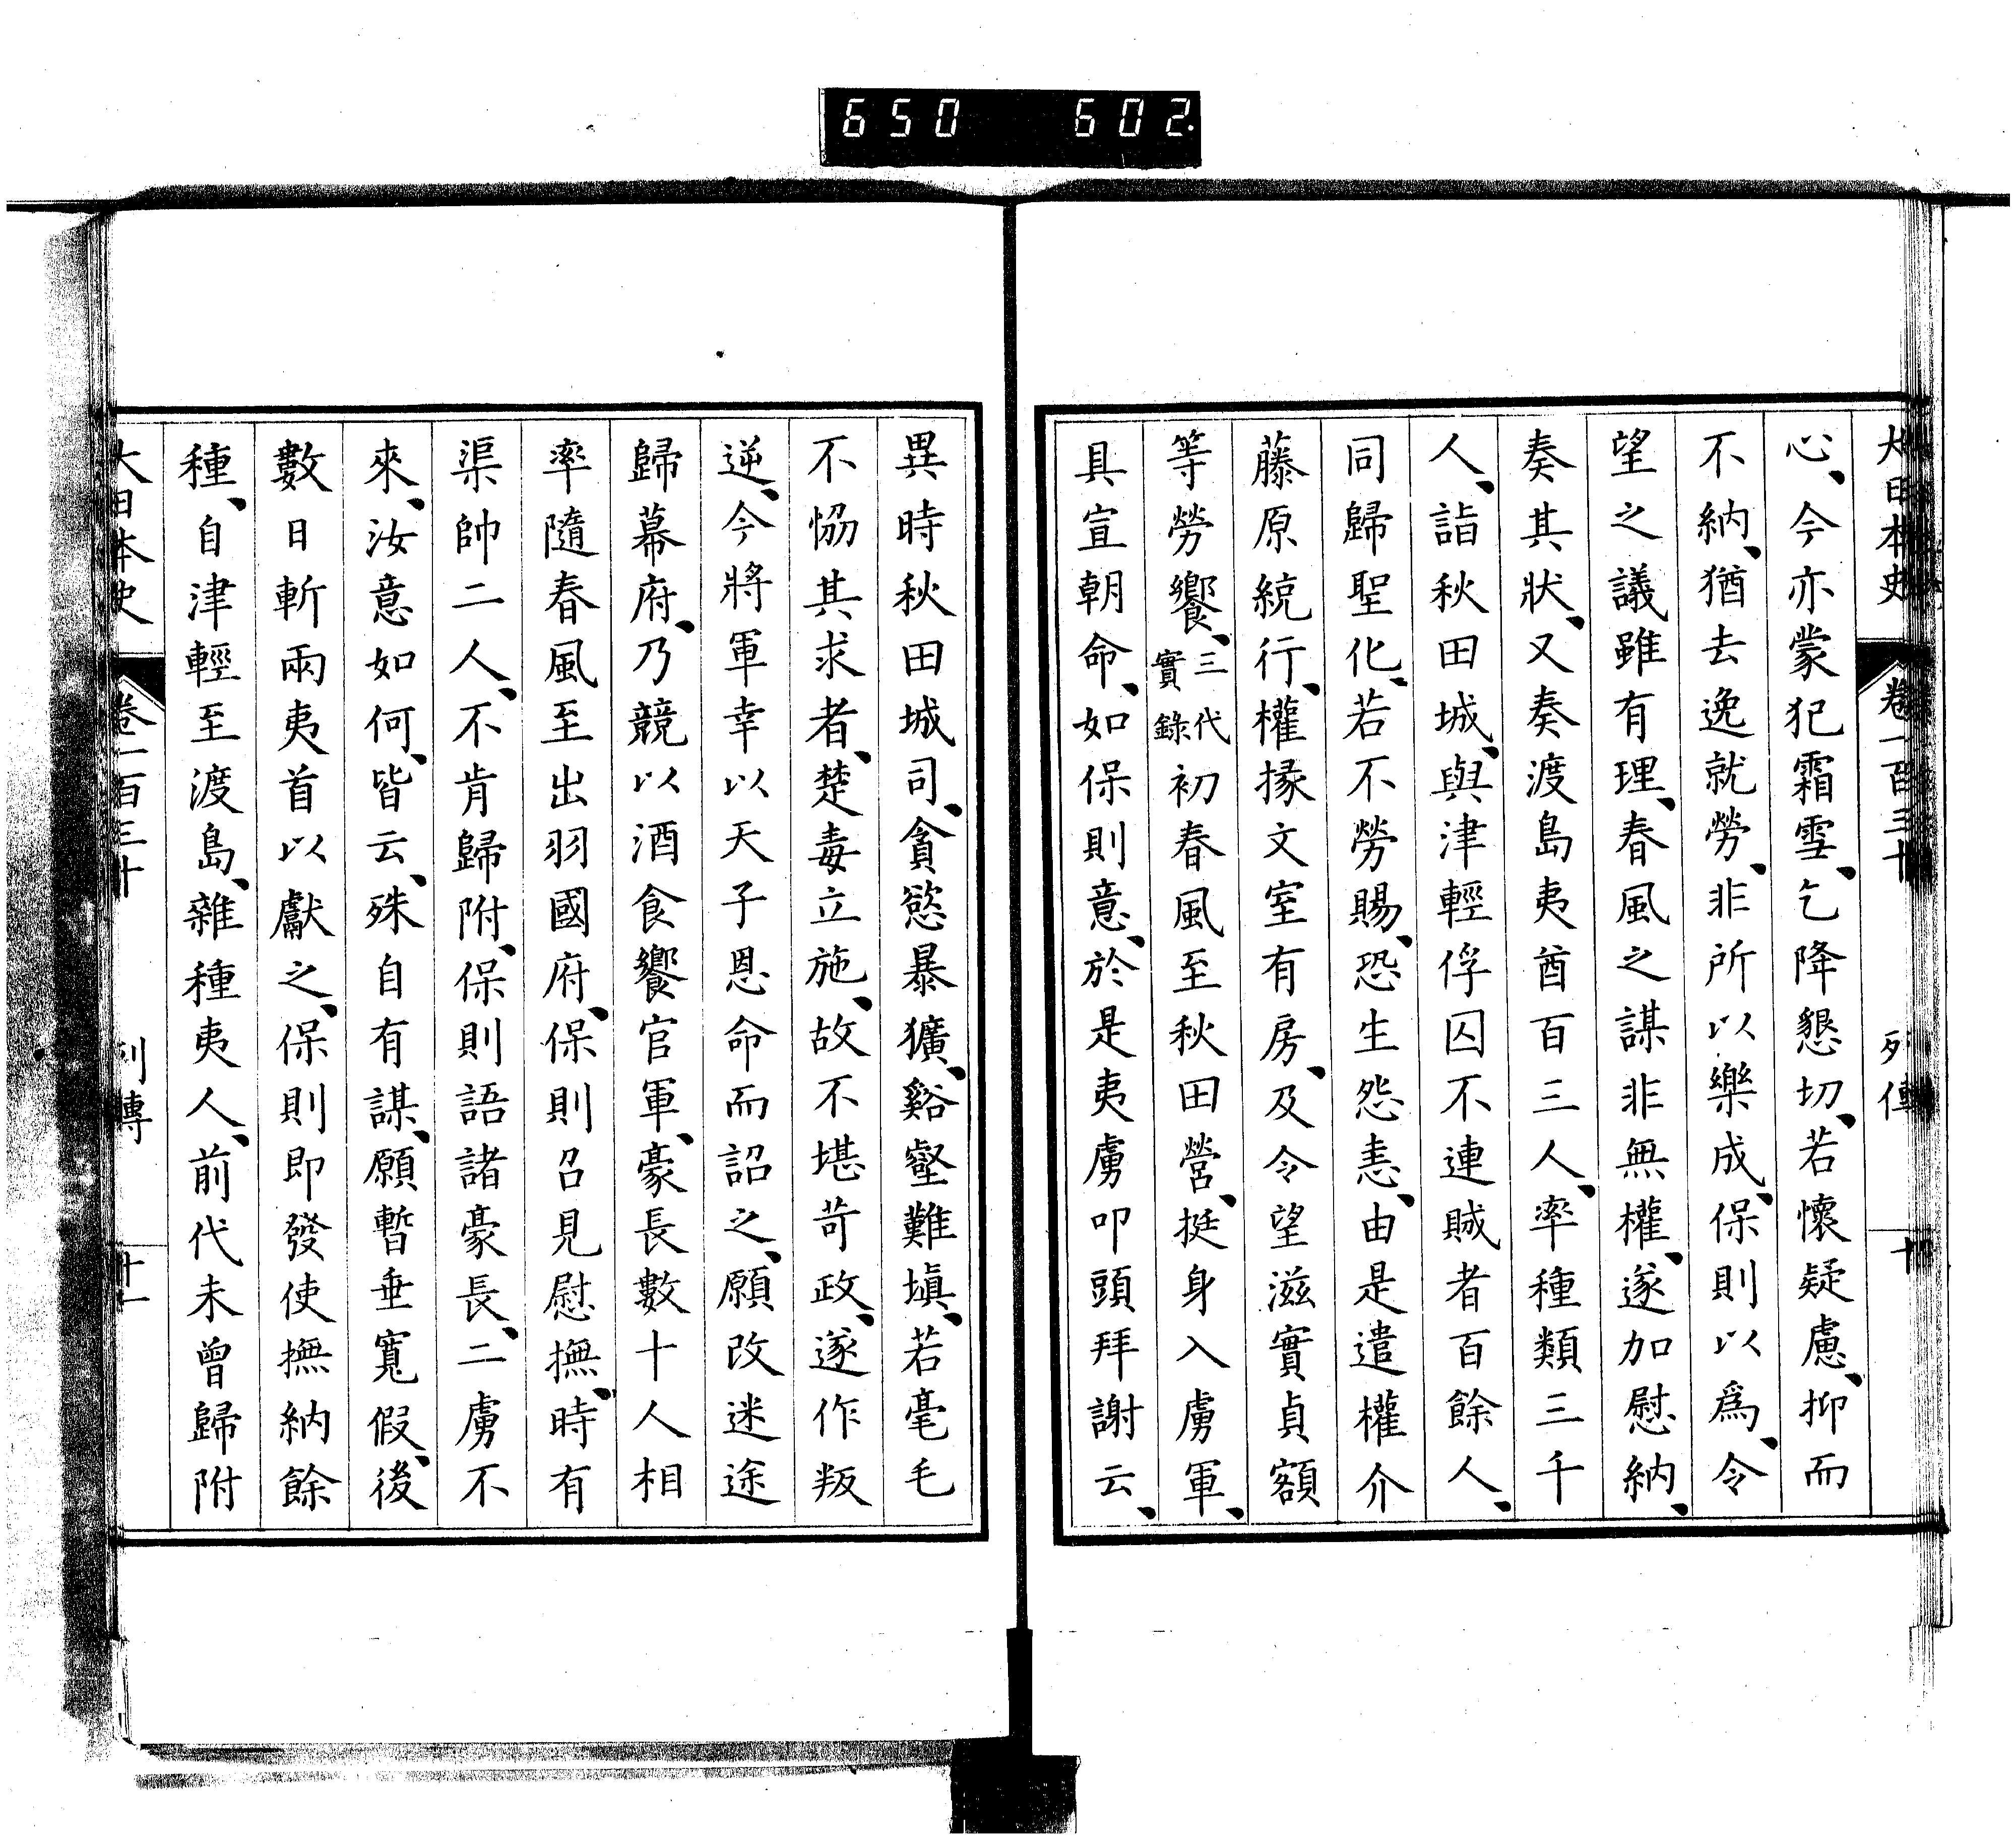 650 602.
大日本史 卷一百三十 列傳 十
心、今亦蒙犯霜雪、乞降懇切、若懷疑慮、抑而
不納、猶去逸就勞、非所以樂成、保則以爲、令
望之議雖有理、春風之謀非無權、遂加慰納、
奏其狀、又奏渡島夷酋百三人、率種類三千
人、詣秋田城、與津輕俘囚不連賊者百餘人、
同歸聖化、若不勞賜、恐生怨恚、由是遣權介
藤原統行、權掾文室有房、及令望滋實貞額
等勞饗、三代實錄初春風至秋田營、挺身入虜軍、
具宣朝命、如保則意、於是夷虜叩頭拜謝云、
異時秋田城司、貪慾暴獷、谿壑難塡、若毫毛
不恊其求者、楚毒立施、故不堪苛政、遂作叛
逆、今將軍幸以天子恩命而詔之、願改迷途
歸幕府、乃競以酒食饗官軍、豪長數十人相
率隨春風至出羽國府、保則召見慰撫、時有
渠帥二人、不肯歸附、保則語諸豪長、二虜不
來、汝意如何、皆云、殊自有謀、願暫垂寬假、後
數日斬兩夷首以獻之、保則即發使撫納餘
種、自津輕至渡島、雜種夷人、前代未曾歸附
大日本史 卷一百三十 列傳 十一